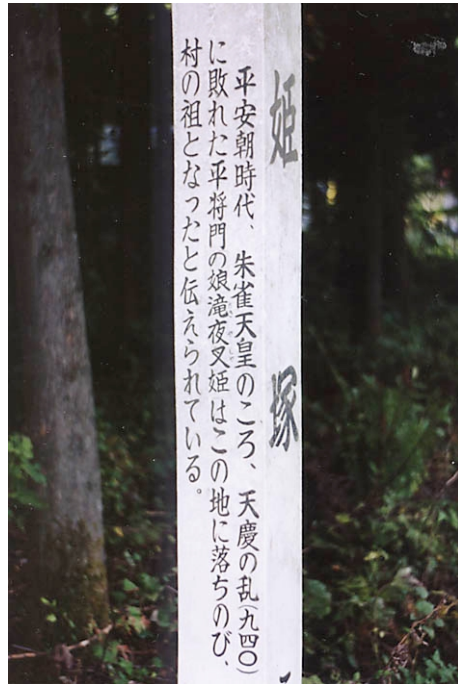 姫塚
平安朝時代、朱雀天皇のころ、天慶の乱(九四〇)
に敗れた平将門の娘滝夜叉姫はこの地に落ちのび、
村の祖となったと伝えられている。